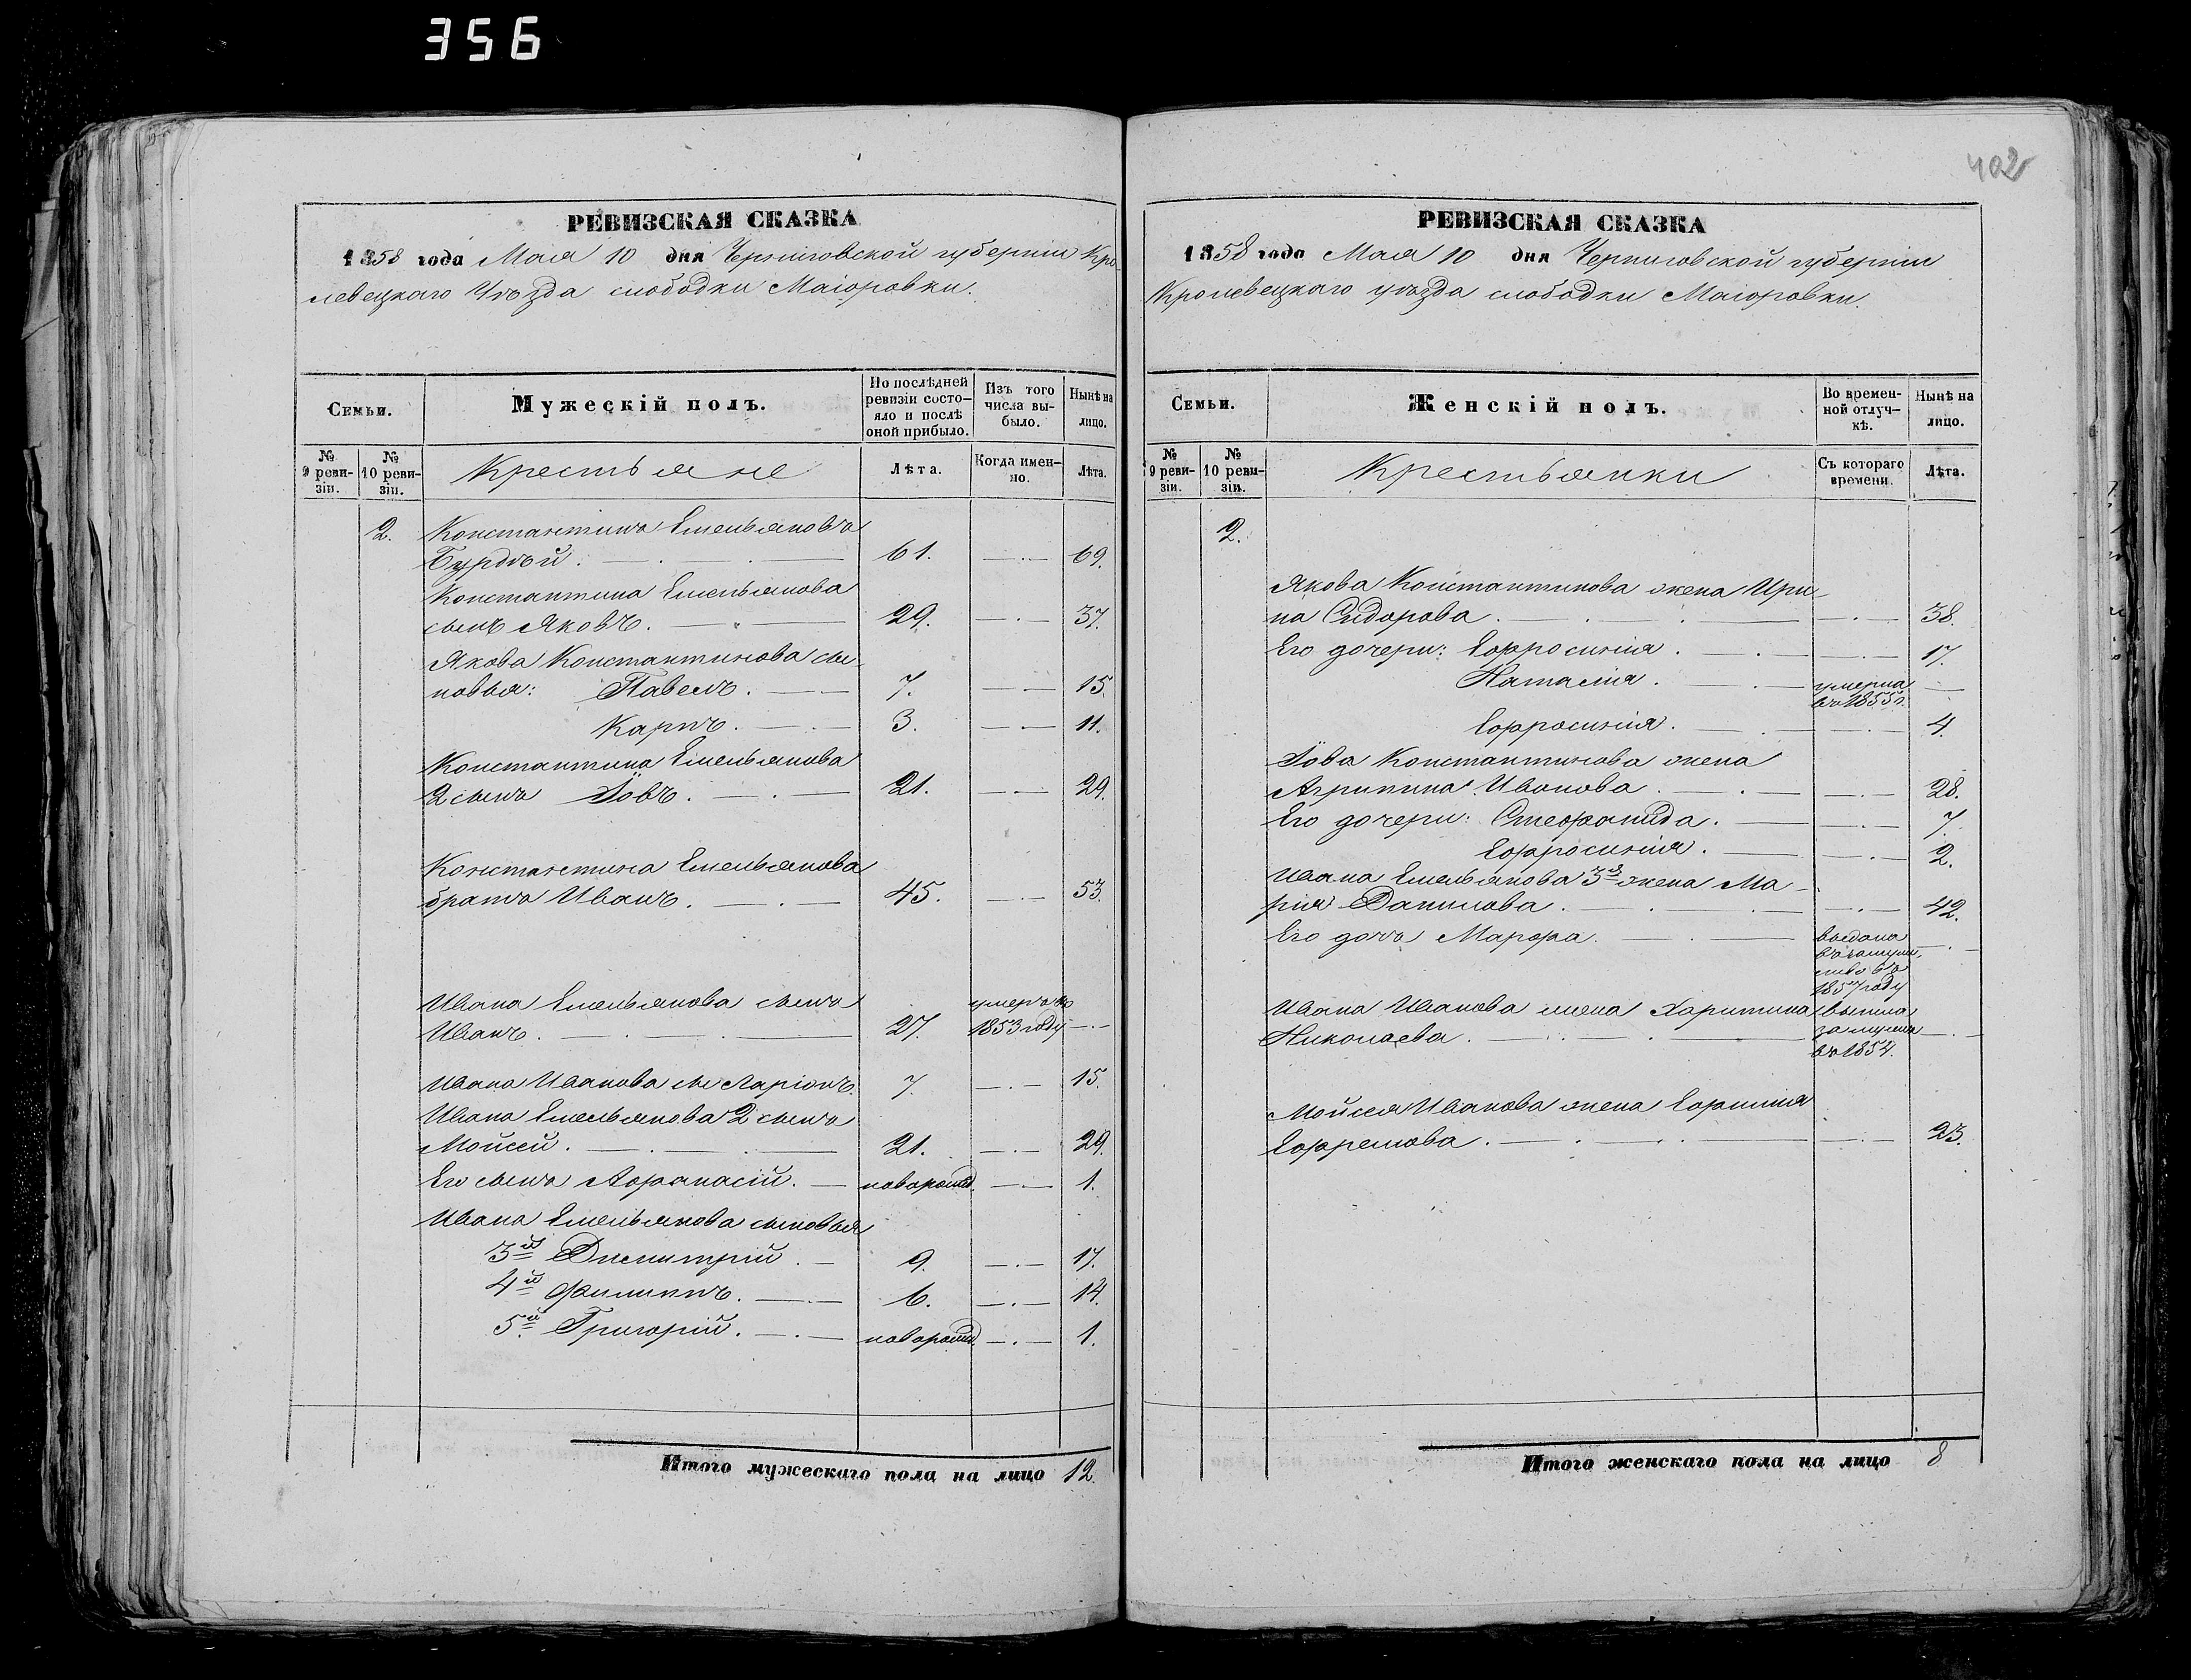 356
402
РЕВИЗСКАЯ СКАЗКА
1858 года Мая 10 дня Черниговской губернии Кро-
левецкаго Уѣзда слободки Маіоровки.
Семьи.
Мужескій полъ.
По послѣдней ревизіи состо-
яло и послѣ
оной прибыло.
Изъ того
числа вы-
было.
Нынѣ на
лицо.
№ 9 реви-
зіи.
№ 10 реви-
зіи.
Крестьяне
Лѣта.
Когда имен-
но.
Лѣта.
2. Константинъ Емельяновъ
Бурдѣй. 61. 69.
Константина Емельянова
сынъ Яковъ. 29. 37.
Якова Константинова сы-
новья: Павелъ. 7. 15.
Карпъ. 3. 11.
Константина Емельянова
2 сынъ Іовъ. 21. 29.
Константина Емельянова
братъ Иванъ. 45. 53.
Ивана Емельянова сынъ умеръ въ
Иванъ. 27. 1853 году
Ивана Иванова сы Ларіонъ. 7. 15.
Ивана Емельянова 2 сынъ
Мойсей. 21. 29.
Его сынъ Афанасій. новорожд. 1.
Ивана Емельянова сыновья
3й Дмитрій. 9. 17.
4й Филиппъ. 6. 14.
5й Григорій. новорожд. 1.
Итого мужескаго пола на лицо 12.
РЕВИЗСКАЯ СКАЗКА
1858 года Мая 10 дня Черниговской губерніи
Кролевецкаго уѣзда слободки Маіоровки.
Семьи.
Женскій полъ.
Во времен-
ной отлуч-
кѣ.
Нынѣ на
лицо.
№ 9 реви-
зіи.
№ 10 реви-
зіи.
Крестьянки
Съ котораго
времени.
Лѣта.
2.
Якова Константинова жена Ири-
на Сидорова. 38.
Его дочери: Ефросинія. 17.
Наталія. умерла
въ 1855 г.
Ефросинія. 4.
Іова Константинова жена
Агрипина Иванова. 28.
Его дочери: Стефанида. 7.
Ефросинія. 2.
Ивана Емельянова 3я жена Ма-
рія Данилова. 42.
Его дочь Марфа. выдана
въ замуж-
ство въ
1857 году
Ивана Иванова жена Харитина вышла
Николаева. замужъ
въ 1854.
Мойсея Иванова жена Ефимія
Ефремова. 23.
Итого женскаго пола на лицо 8